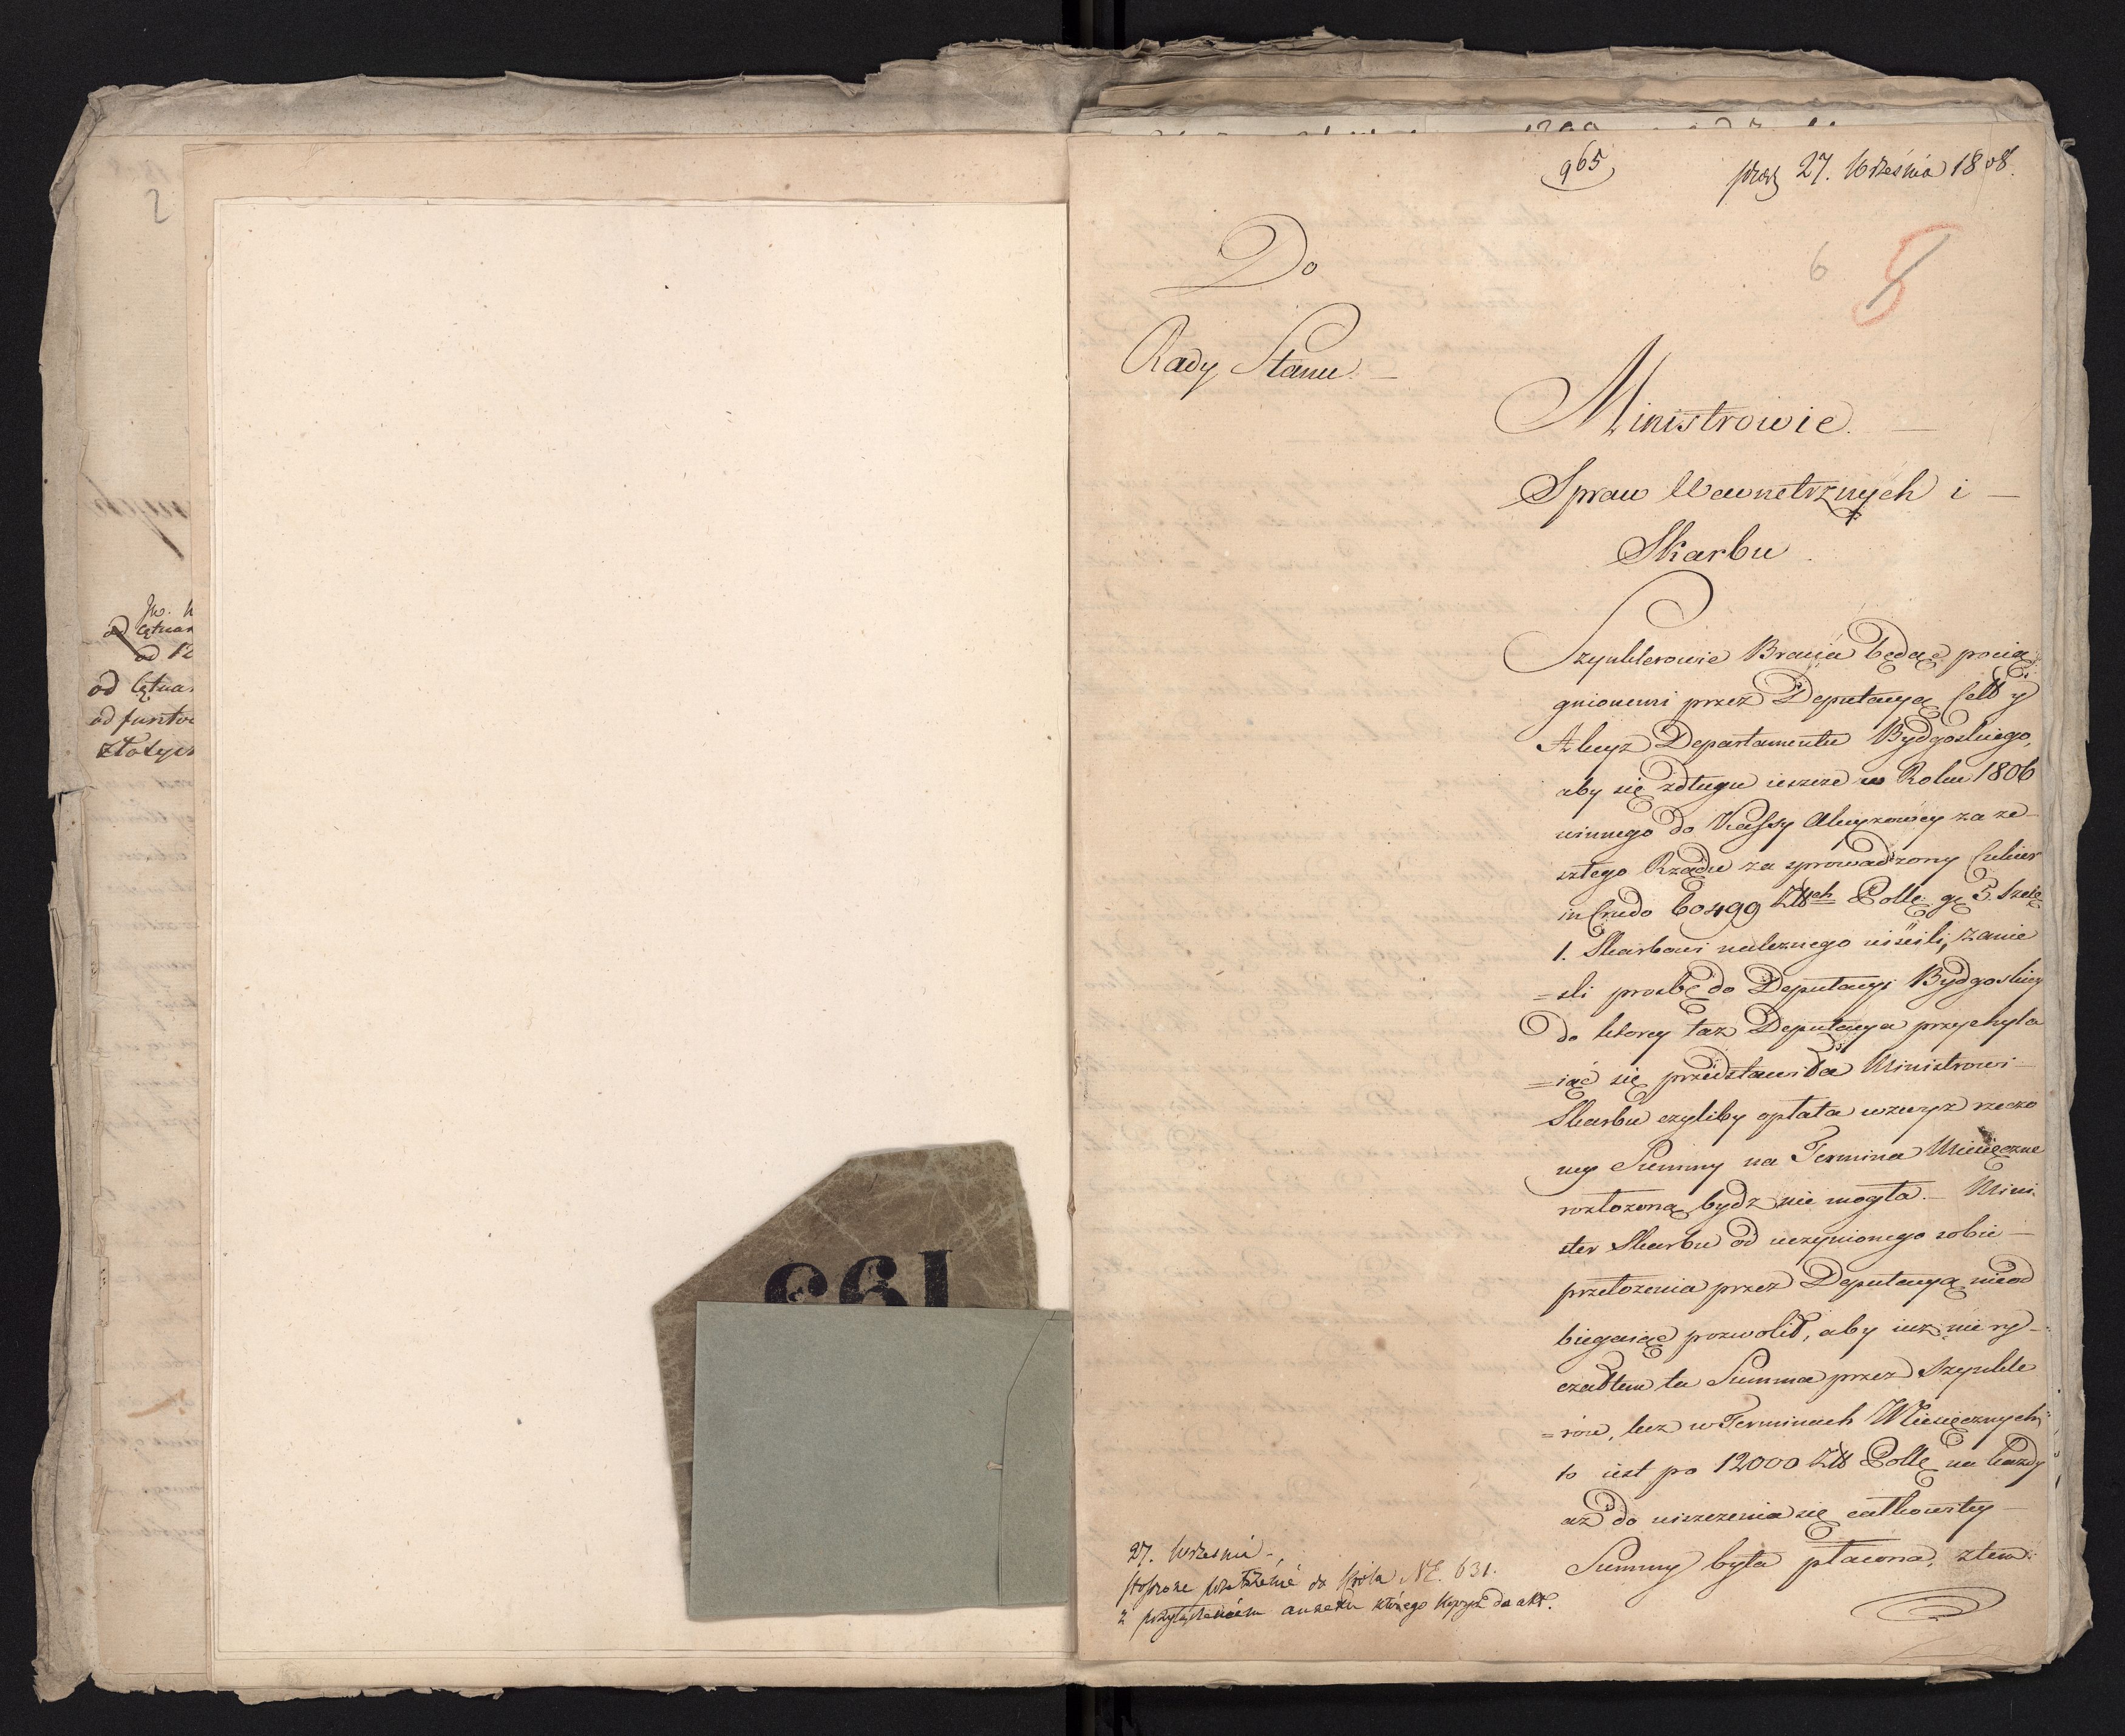 2
Jw. W
od Cętnar
od 12
od Cętnar
od funtów
złotych
199
965
praes 27. Września 1808.
6
8
Do
Rady Stanu. —
Ministrowie. —
Spraw Wewnetrznych i —
Skarbu.
Szyklerowie Bracia będąc pocią
gnionemi przez Deputacyą Cell y
Akcyz Departamentu Bydgoskiego,
aby się zdługu ieszcze w Roku 1806
winnego do Kassy Akcyzowey za ze-
szłego Rządu za sprowadzony Cukier
in Crudo 60499 Złłch Polle gr 5. Szelę
1. Skarbowi należnego uiścili, zanie
=sli prozbę do Deputacyi Bydgoskiey
do ktorey taz Deputacya przychyla
=iąc się przedstawiła Ministrowi —
Skarbu czyliby opłata wzwyz rzeczo
ney Summy na Termina Miesięczne
rozłozoną bydz nie mogła. — Mini
ster Skarbu od uczynionego sobie —
przełozenia przez Deputacyą nieod
biegaiąc pozwolił, aby iuz nie ry-
czałtem ta Summa przez Szykle
=row, lecz w Terminach Miesięcznych
to iest po 12000 Złł Polle na każdy
aż do uiszczenia się całkowitey —
Summy była płacona, ztem
27. Września.
stosowne przełożenie do Króla NE. 631.
z przyłączeniem anexu którego kopya do akt.